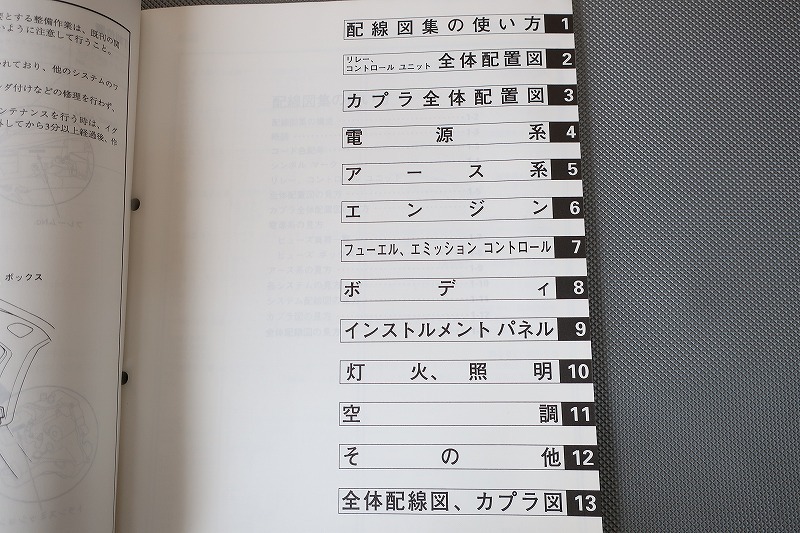 要とする整備作業は、既刊の関
いように注意して行うこと。
れており、他のシステムのワ
ダ付けなどの修理を行わず、
ンテナンスを行う時は、イグ
してから3分以上経過後、作
ボックス
配線図集の使い方 1
リレー、
コントロール ユニット 全体配置図 2
カプラ全体配置図 3
電源系 4
アース系 5
エンジン 6
フューエル、エミッション コントロール 7
ボディ 8
インストルメント パネル 9
灯火、照明 10
空調 11
その他 12
全体配線図、カプラ図 13